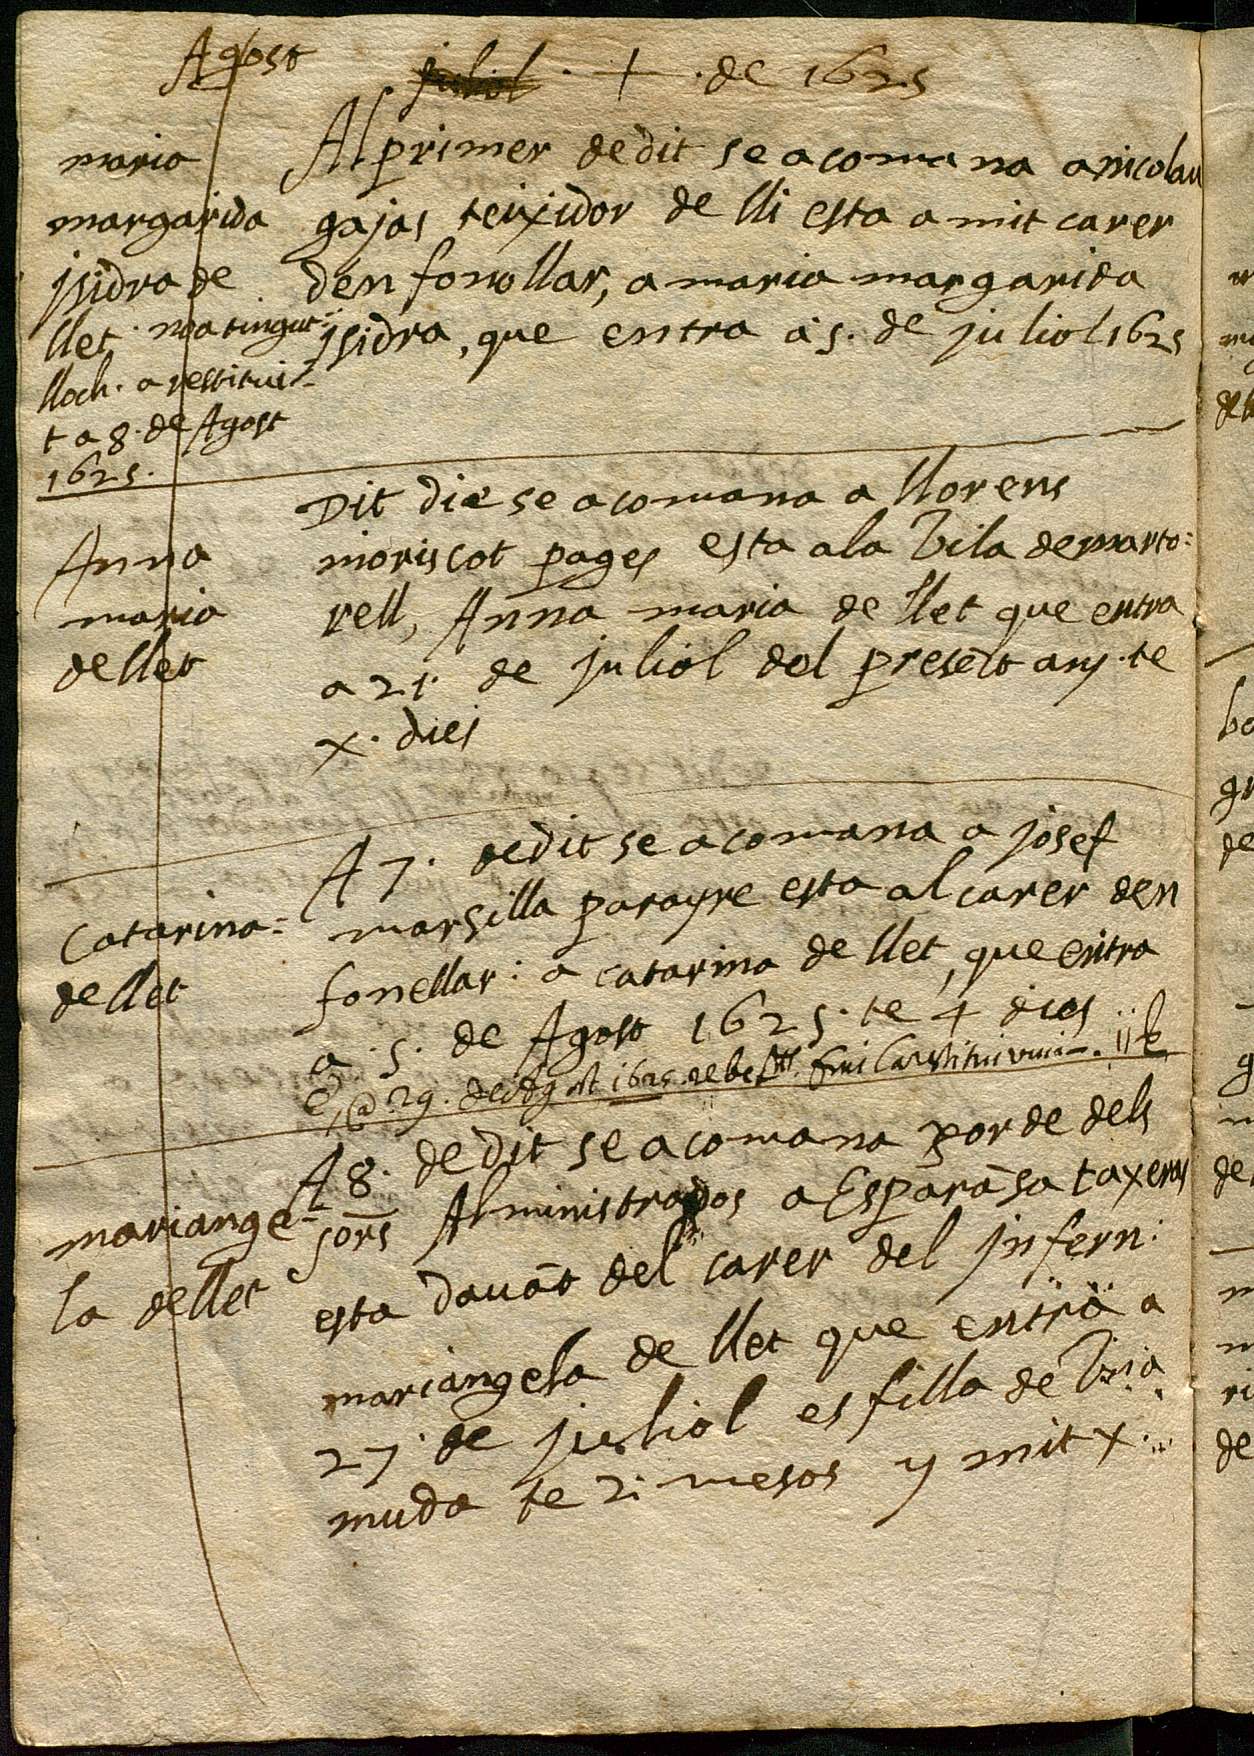 Agost juliol · + · de 1625
maria
margarida
jsidra de
llet · no a tingut
lloch · a restitui-
t a 8 · de Agost
1625 ·
Al primer de dit se acomana a nicolau
gajas teixidor de lli esta a mit carer
den fonollar, a maria margarida
jsidra, que entra a 5 · de juliol 1625
Anna
maria
de llet
Dit die se acomana a llorens
moriscot pages esta a la Vila de marto=
rell, Anna maria de llet que entra
a 21 · de juliol del presēt any · te
x · dies
Catarina=
de llet
A 7 · de dit se acomana a josef
marsilla parayre esta al carer den
fonellar : a catarina de llet, que entra
a · 5 · de Agost 1625 · te 4 dies
@ 29 · de Agost 1625
mariange=
la de llet
A 8 · de dit se acomana por de dels
sors Alministrados a Esparāsa taxeras
esta dauāt del carer del jnfern :
mariangela de llet que entra a
27 · de juliol es filla de Vna
muda te 2 · mesos y mit x ·